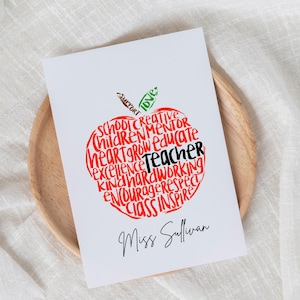 SUPPORT LOVE
SCHOOL CREATIVE
CHILDREN MENTOR
heart GROW educate
excellence TEACHER
KIND hardworking
encourage RESPECT
CLASS INSPIRE
Miss Sullivan